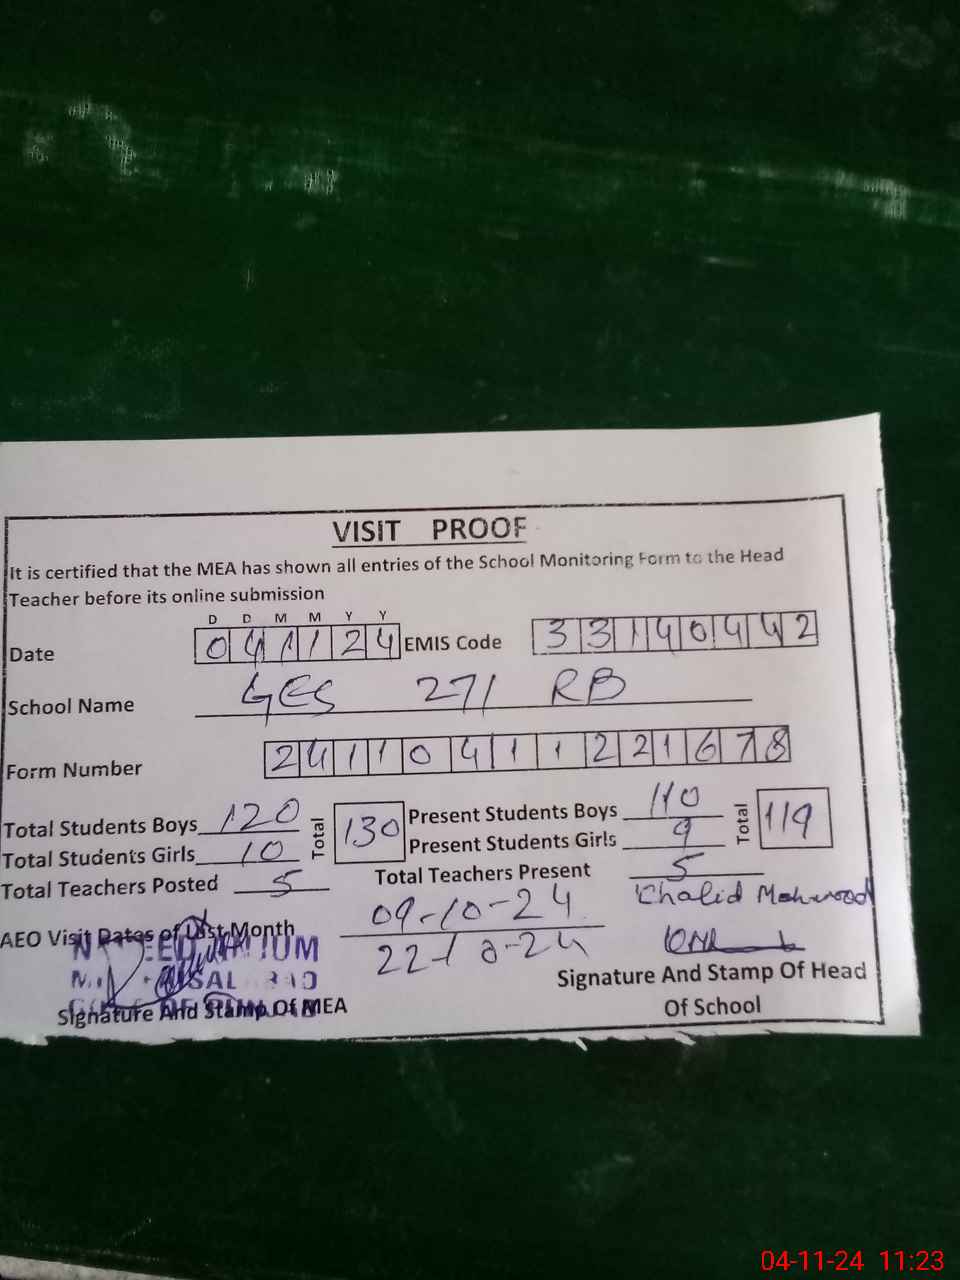 VISIT PROOF
It is certified that the MEA has shown all entries of the School Monitoring Form to the Head
Teacher before its online submission
D D M M Y Y
Date 041124 EMIS Code 33140442
School Name GES 271 RB
Form Number 24110411221678
Total Students Boys 120 Total 130 Present Students Boys 110 Total 119
Total Students Girls 10 Present Students Girls 9
Total Teachers Posted 5 Total Teachers Present 5
Khalid Mahmood
AEO Visit Dates of Last Month 09-10-24
22-10-24
Signature And Stamp Of MEA
Signature And Stamp Of Head
Of School
04-11-24 11:23